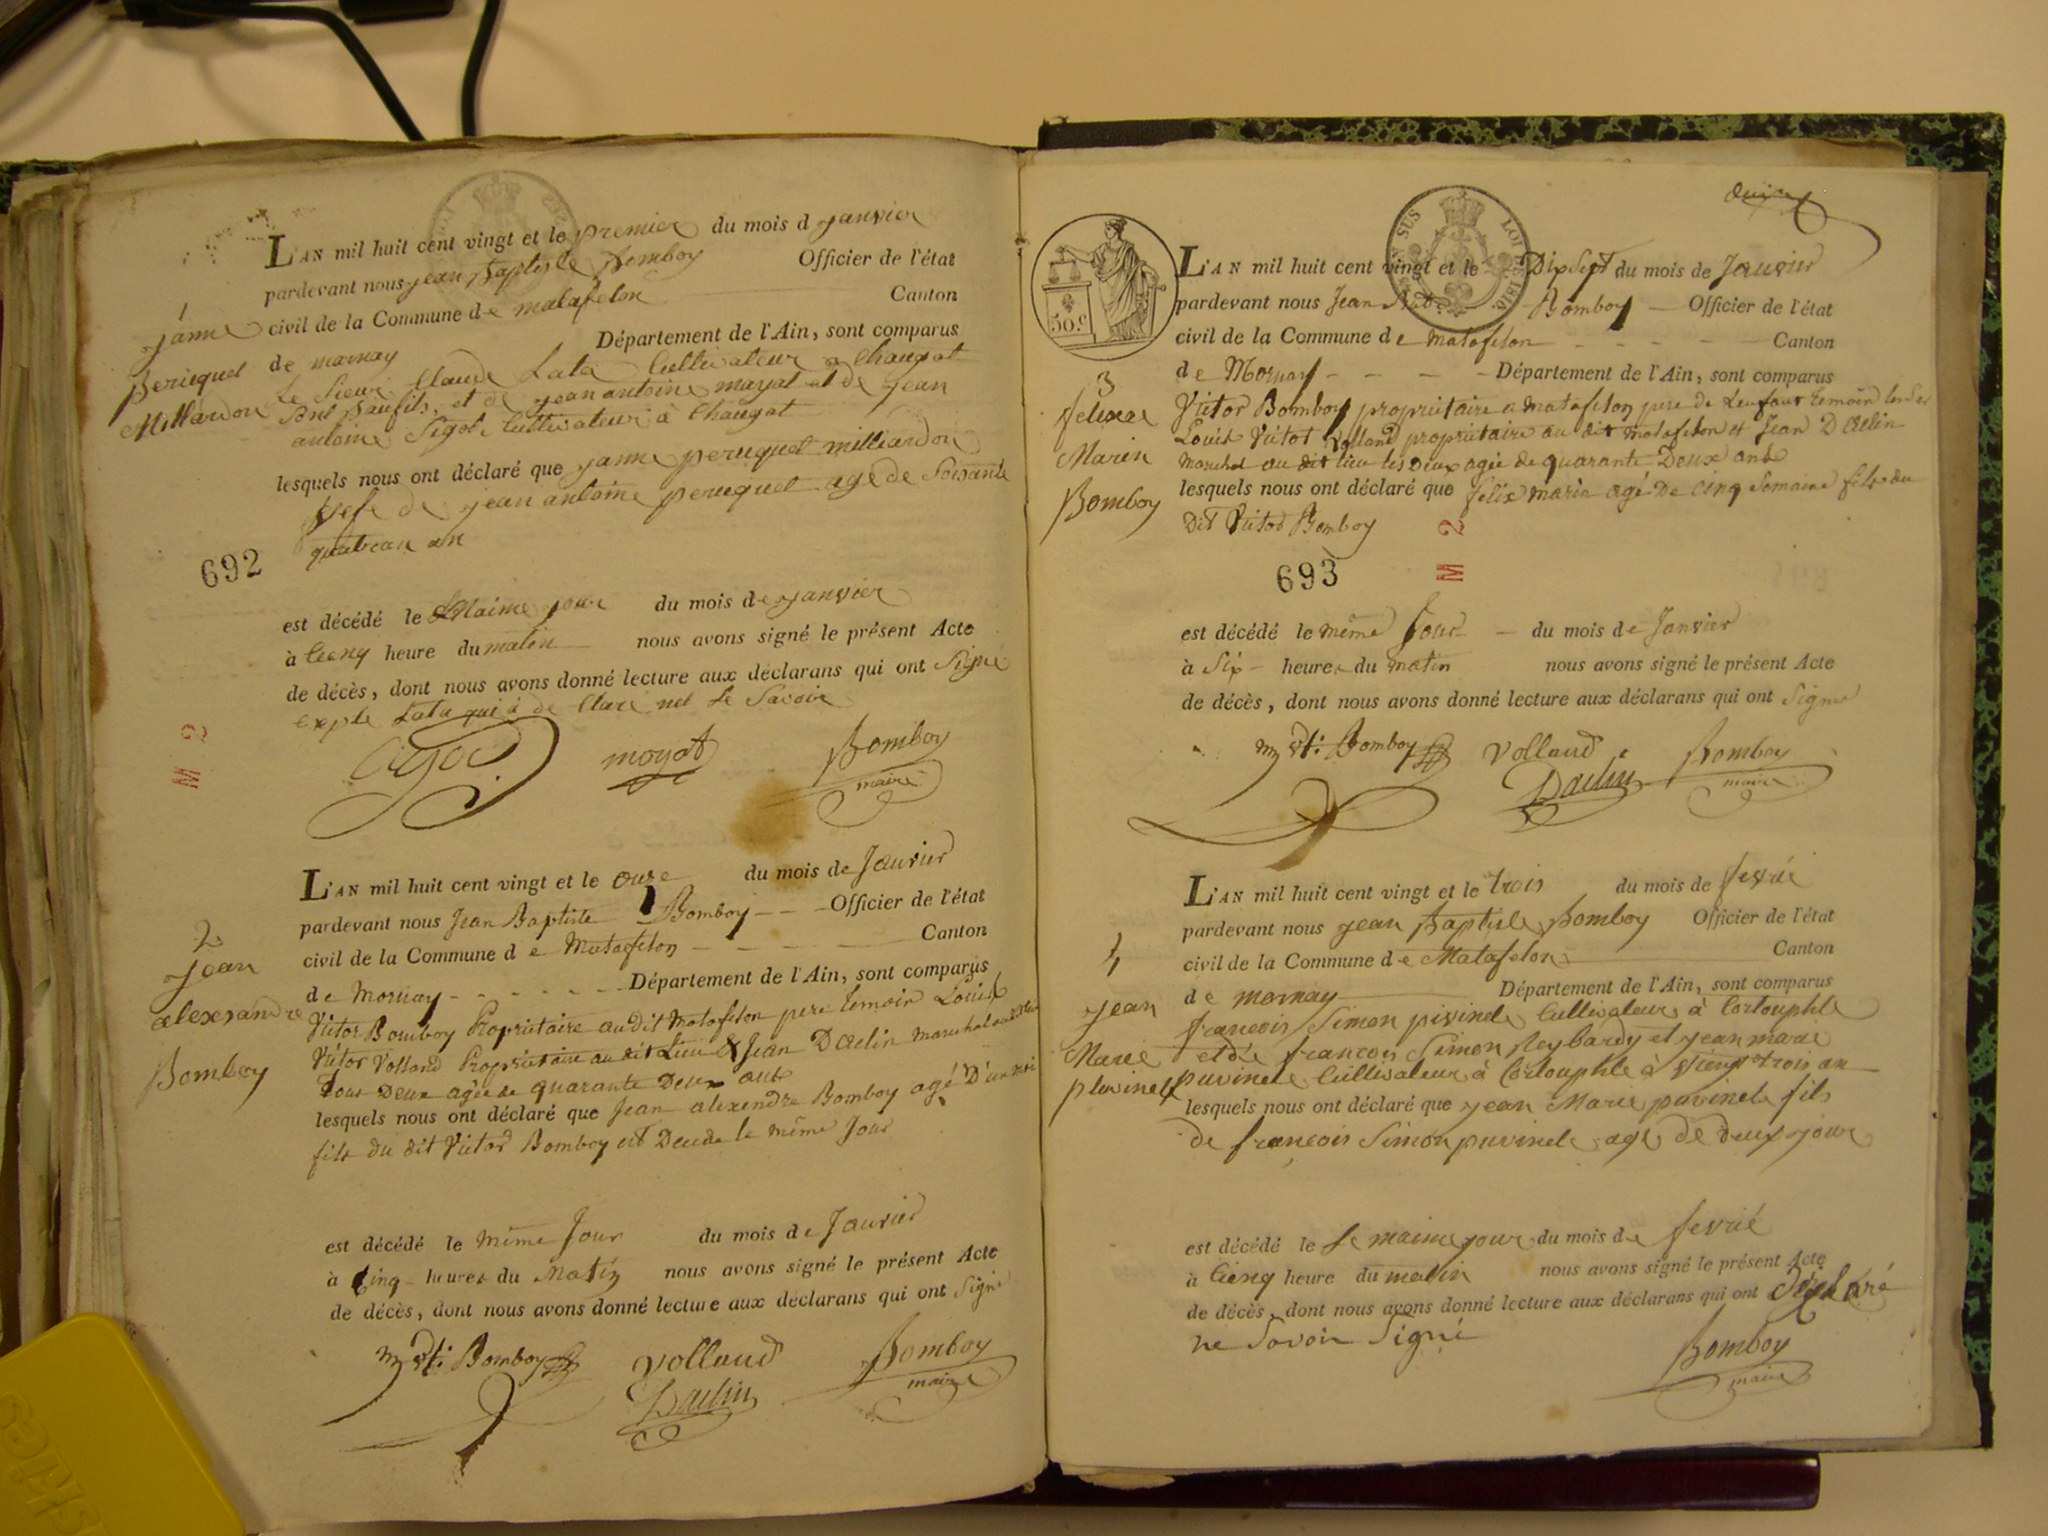 L'AN mil huit cent vingt et le premier du mois d janvier
pardevant nous jean Baptiste Bomboy Officier de l'état
civil de la Commune de matafelon Canton
de mornay Département de l'Ain, sont comparus
Le Sieur Claude Lata Cultivateur a Chaugat
Son Baufils, et de jean antoine moyat et de jean
antoine Sigot Cultivateur à Chaugat
lesquels nous ont déclaré que janne peruquet milliardon
de jean antoine peruquet agé de Soisante
quatran an
janne
peruquet
Milliardon
692
est décédé le Maime jour du mois de janvier
à Cienq heure du matin nous avons signé le présent Acte
de décès, dont nous avons donné lecture aux déclarans qui ont Signé
exple Lata qui à de Claré net Le Savoir
moyat Bomboy
maire
M 2
L'AN mil huit cent vingt et le onze du mois de Janvier
pardevant nous Jean Baptiste Bomboy Officier de l'état
civil de la Commune de Matafelon Canton
de Mornay Département de l'Ain, sont comparus
Victor Bomboy Propriétaire audit Matafelon pere temoin Louis
Victor Volland Propriétaire au dit Lieu & Jean Daelin marechal
Tous Deux agée de quarante Deux ans
lesquels nous ont déclaré que Jean alexendre Bomboy agé D'un
fils du dit Victor Bomboy est Decede le même Jour
2
Jean
alexsandre
Bomboy
est décédé le même Jour du mois de Janvier
à Cinq heures du Matin nous avons signé le présent Acte
de décès, dont nous avons donné lecture aux déclarans qui ont Signé
Bomboy Volland Bomboy
Daelin maire
L'AN mil huit cent vingt et le Dix Sept du mois de Janvier
pardevant nous Jean Bomboy Officier de l'état
civil de la Commune de Matafelon Canton
de Mornay Département de l'Ain, sont comparus
Victor Bomboy propriétaire a matafelon pere de Lenfant temoin
Louis Victor Volland propriétaire au dit Matafelon et Jean Daelin
Marechal au dit lieu les Deux agée de quarante Deux ans
lesquels nous ont déclaré que felix marin agé De cinq Semaine fils du
Dit Victor Bomboy
50 c
3
Marin
Bomboy
693
M 2
est décédé le même Jour du mois de Janvier
à Six heures du matin nous avons signé le présent Acte
de décès, dont nous avons donné lecture aux déclarans qui ont Signé
Bomboy Volland Bomboy
Daelin maire
L'AN mil huit cent vingt et le trois du mois de fevrié
pardevant nous jean Baptiste Bomboy Officier de l'état
civil de la Commune de Matafelon Canton
de mornay Département de l'Ain, sont comparus
francois Simon pivinel Cultivateur à Corlouphle
et de francois Simon Reybardy et jean marie
puvinel Cultivateur à Corlouphle à viengt trois an
lesquels nous ont déclaré que jean Marie puvinel fils
de francois Simon puvinel agé de deux jour
4
jean
Marie
pluvinel
est décédé le Le maime jour du mois de fevrié
à Cienq heure du matin nous avons signé le présent Acte
de décès, dont nous avons donné lecture aux déclarans qui ont déclaré
ne Savoir Signé
Bomboy
maire